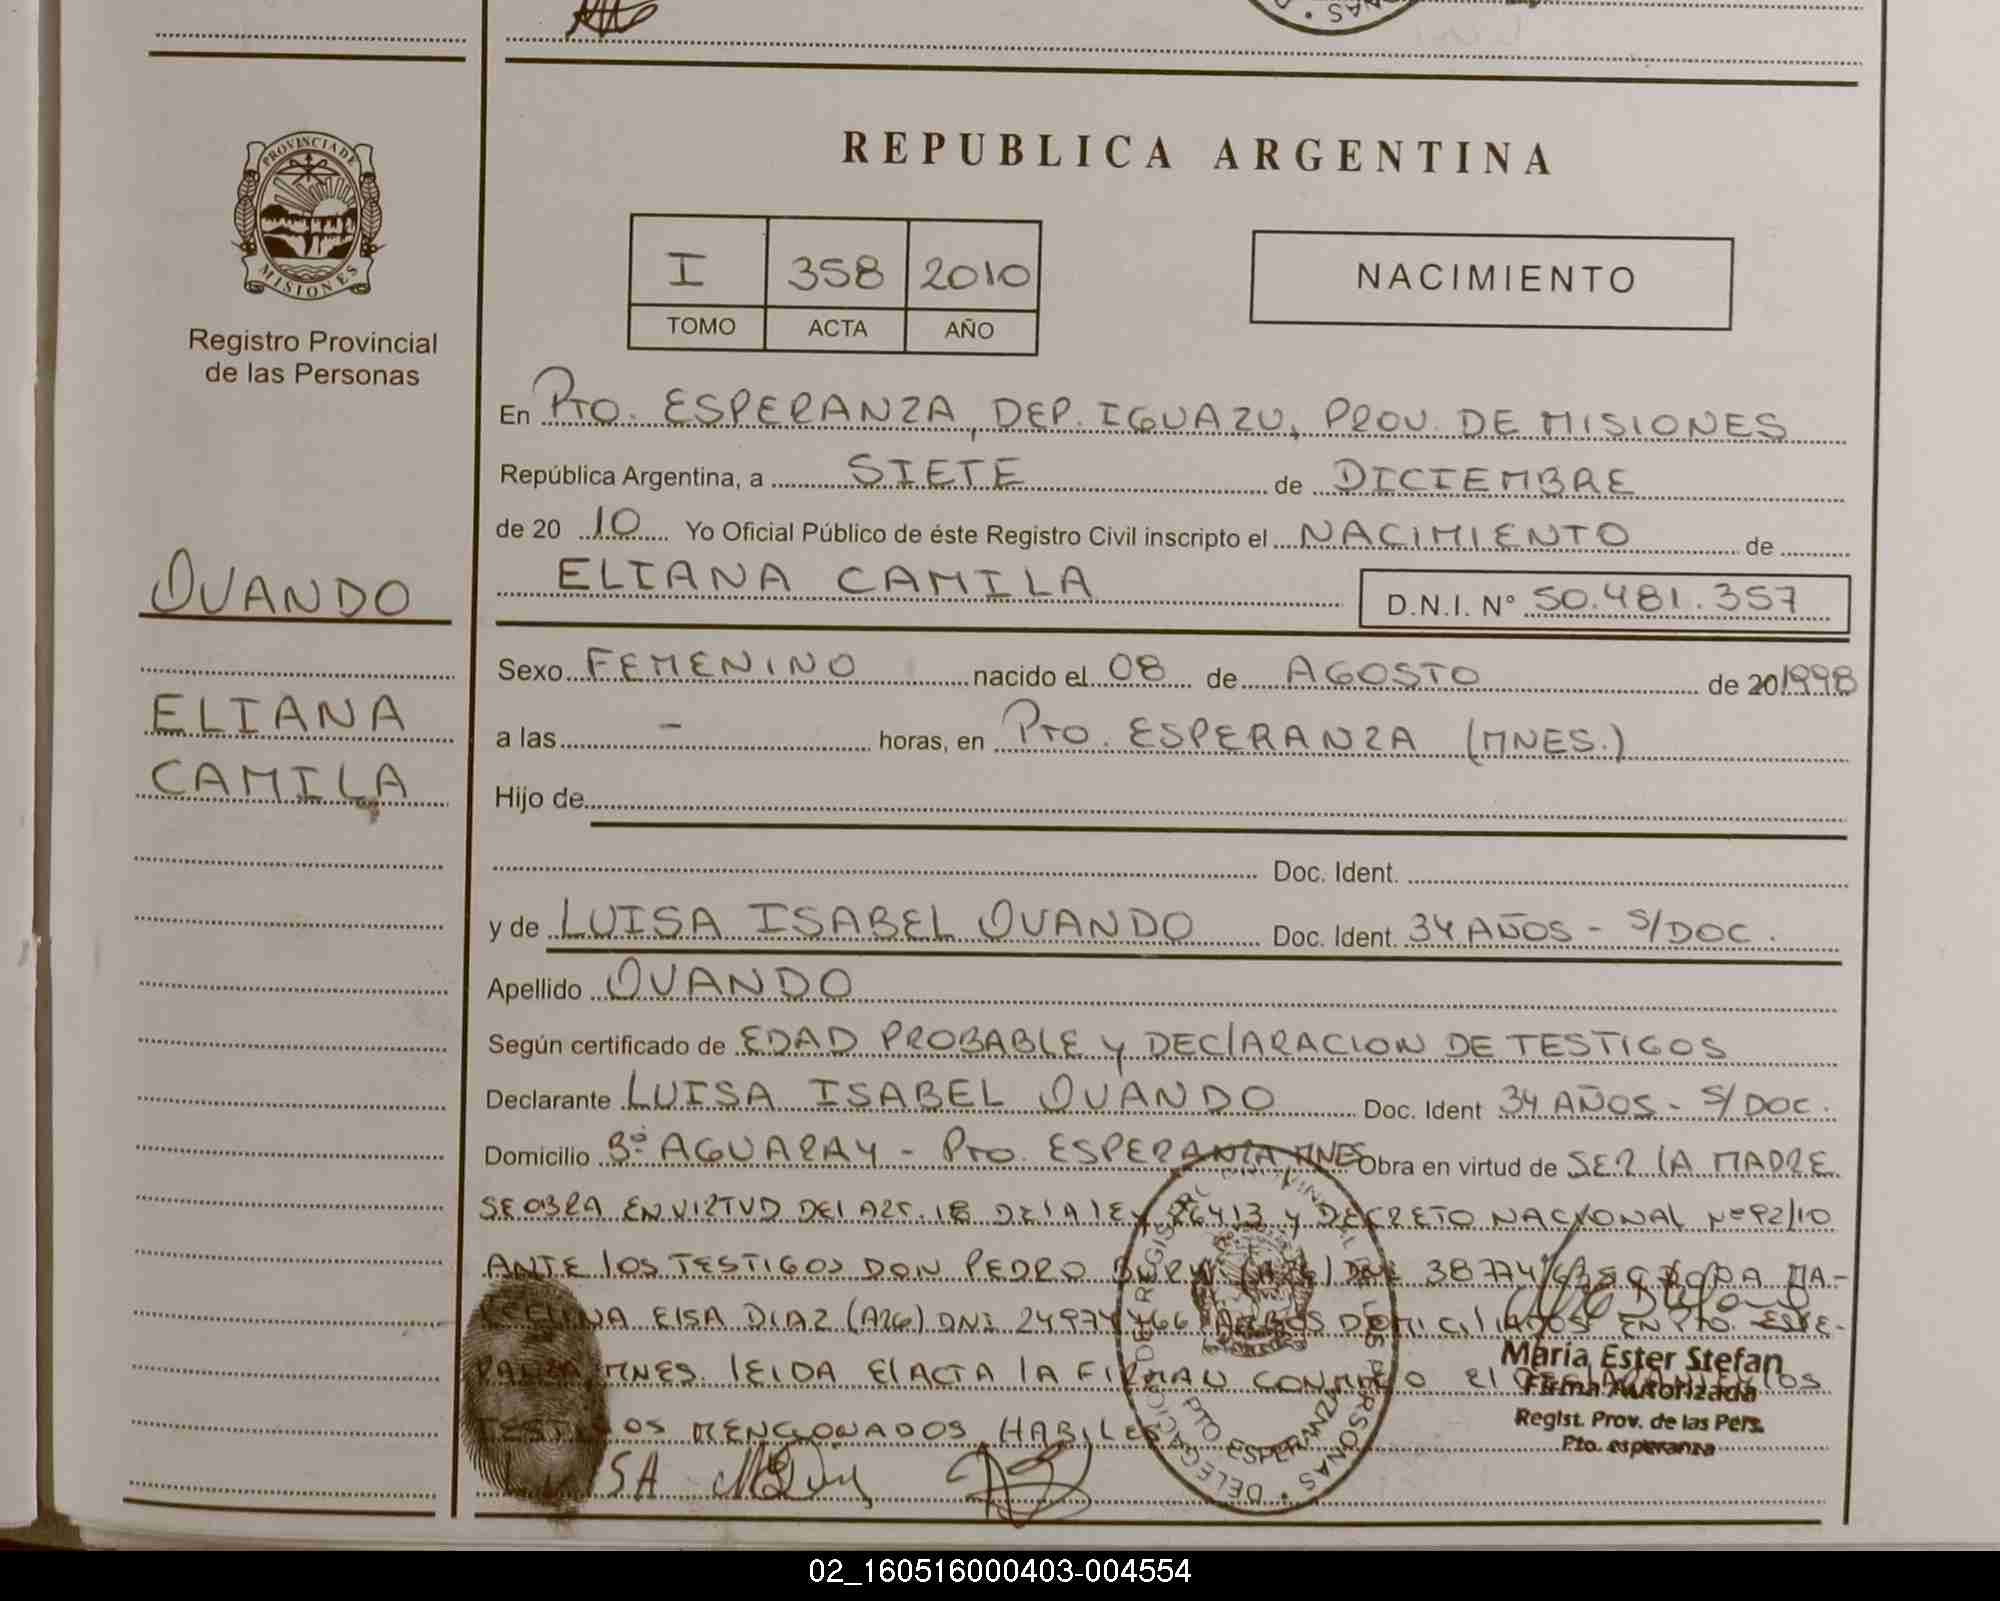 REPUBLICA ARGENTINA
PROVINCIA DE
MISIONES
Registro Provincial
de las Personas
I 358 2010
TOMO ACTA AÑO
NACIMIENTO
En PTO. ESPERANZA, DEP. IGUAZU, PROV. DE MISIONES
República Argentina, a SIETE de DICIEMBRE
de 20 10 Yo Oficial Público de éste Registro Civil inscripto el NACIMIENTO de
ELIANA CAMILA D.N.I. N° 50.481.357
OVANDO
ELIANA
CAMILA
Sexo FEMENINO nacido el 08 de AGOSTO de 20 1998
a las - horas, en PTO. ESPERANZA (MNES.)
Hijo de
Doc. Ident.
y de LUISA ISABEL OVANDO Doc. Ident. 34 AÑOS - S/DOC.
Apellido OVANDO
Según certificado de EDAD PROBABLE Y DECLARACION DE TESTIGOS
Declarante LUISA ISABEL OVANDO Doc. Ident 34 AÑOS - S/DOC.
Domicilio B° AGUARAY - PTO. ESPERANZA, MNES Obra en virtud de SER LA MADRE
SE OBRA EN VIRTUD DEL ART. 18 DE LA LEY 26413 Y DECRETO NACIONAL N° 92/10
ANTE LOS TESTIGOS DON PEDRO DNI 38774 MA-
ELSA DIAZ (A26) DNI 24974466 AMBOS DOMICILIADOS EN PTO. ESPE-
RANZA, MNES. LEIDA EL ACTA LA FIRMAN CONMIGO EL LOS
TESTIGOS MENCIONADOS HABILES
LUISA
DELEGACION PTO ESPERANZA
María Ester Stefan
Firma Autorizada
Regist. Prov. de las Pers.
Pto. esperanza
02_160516000403-004554